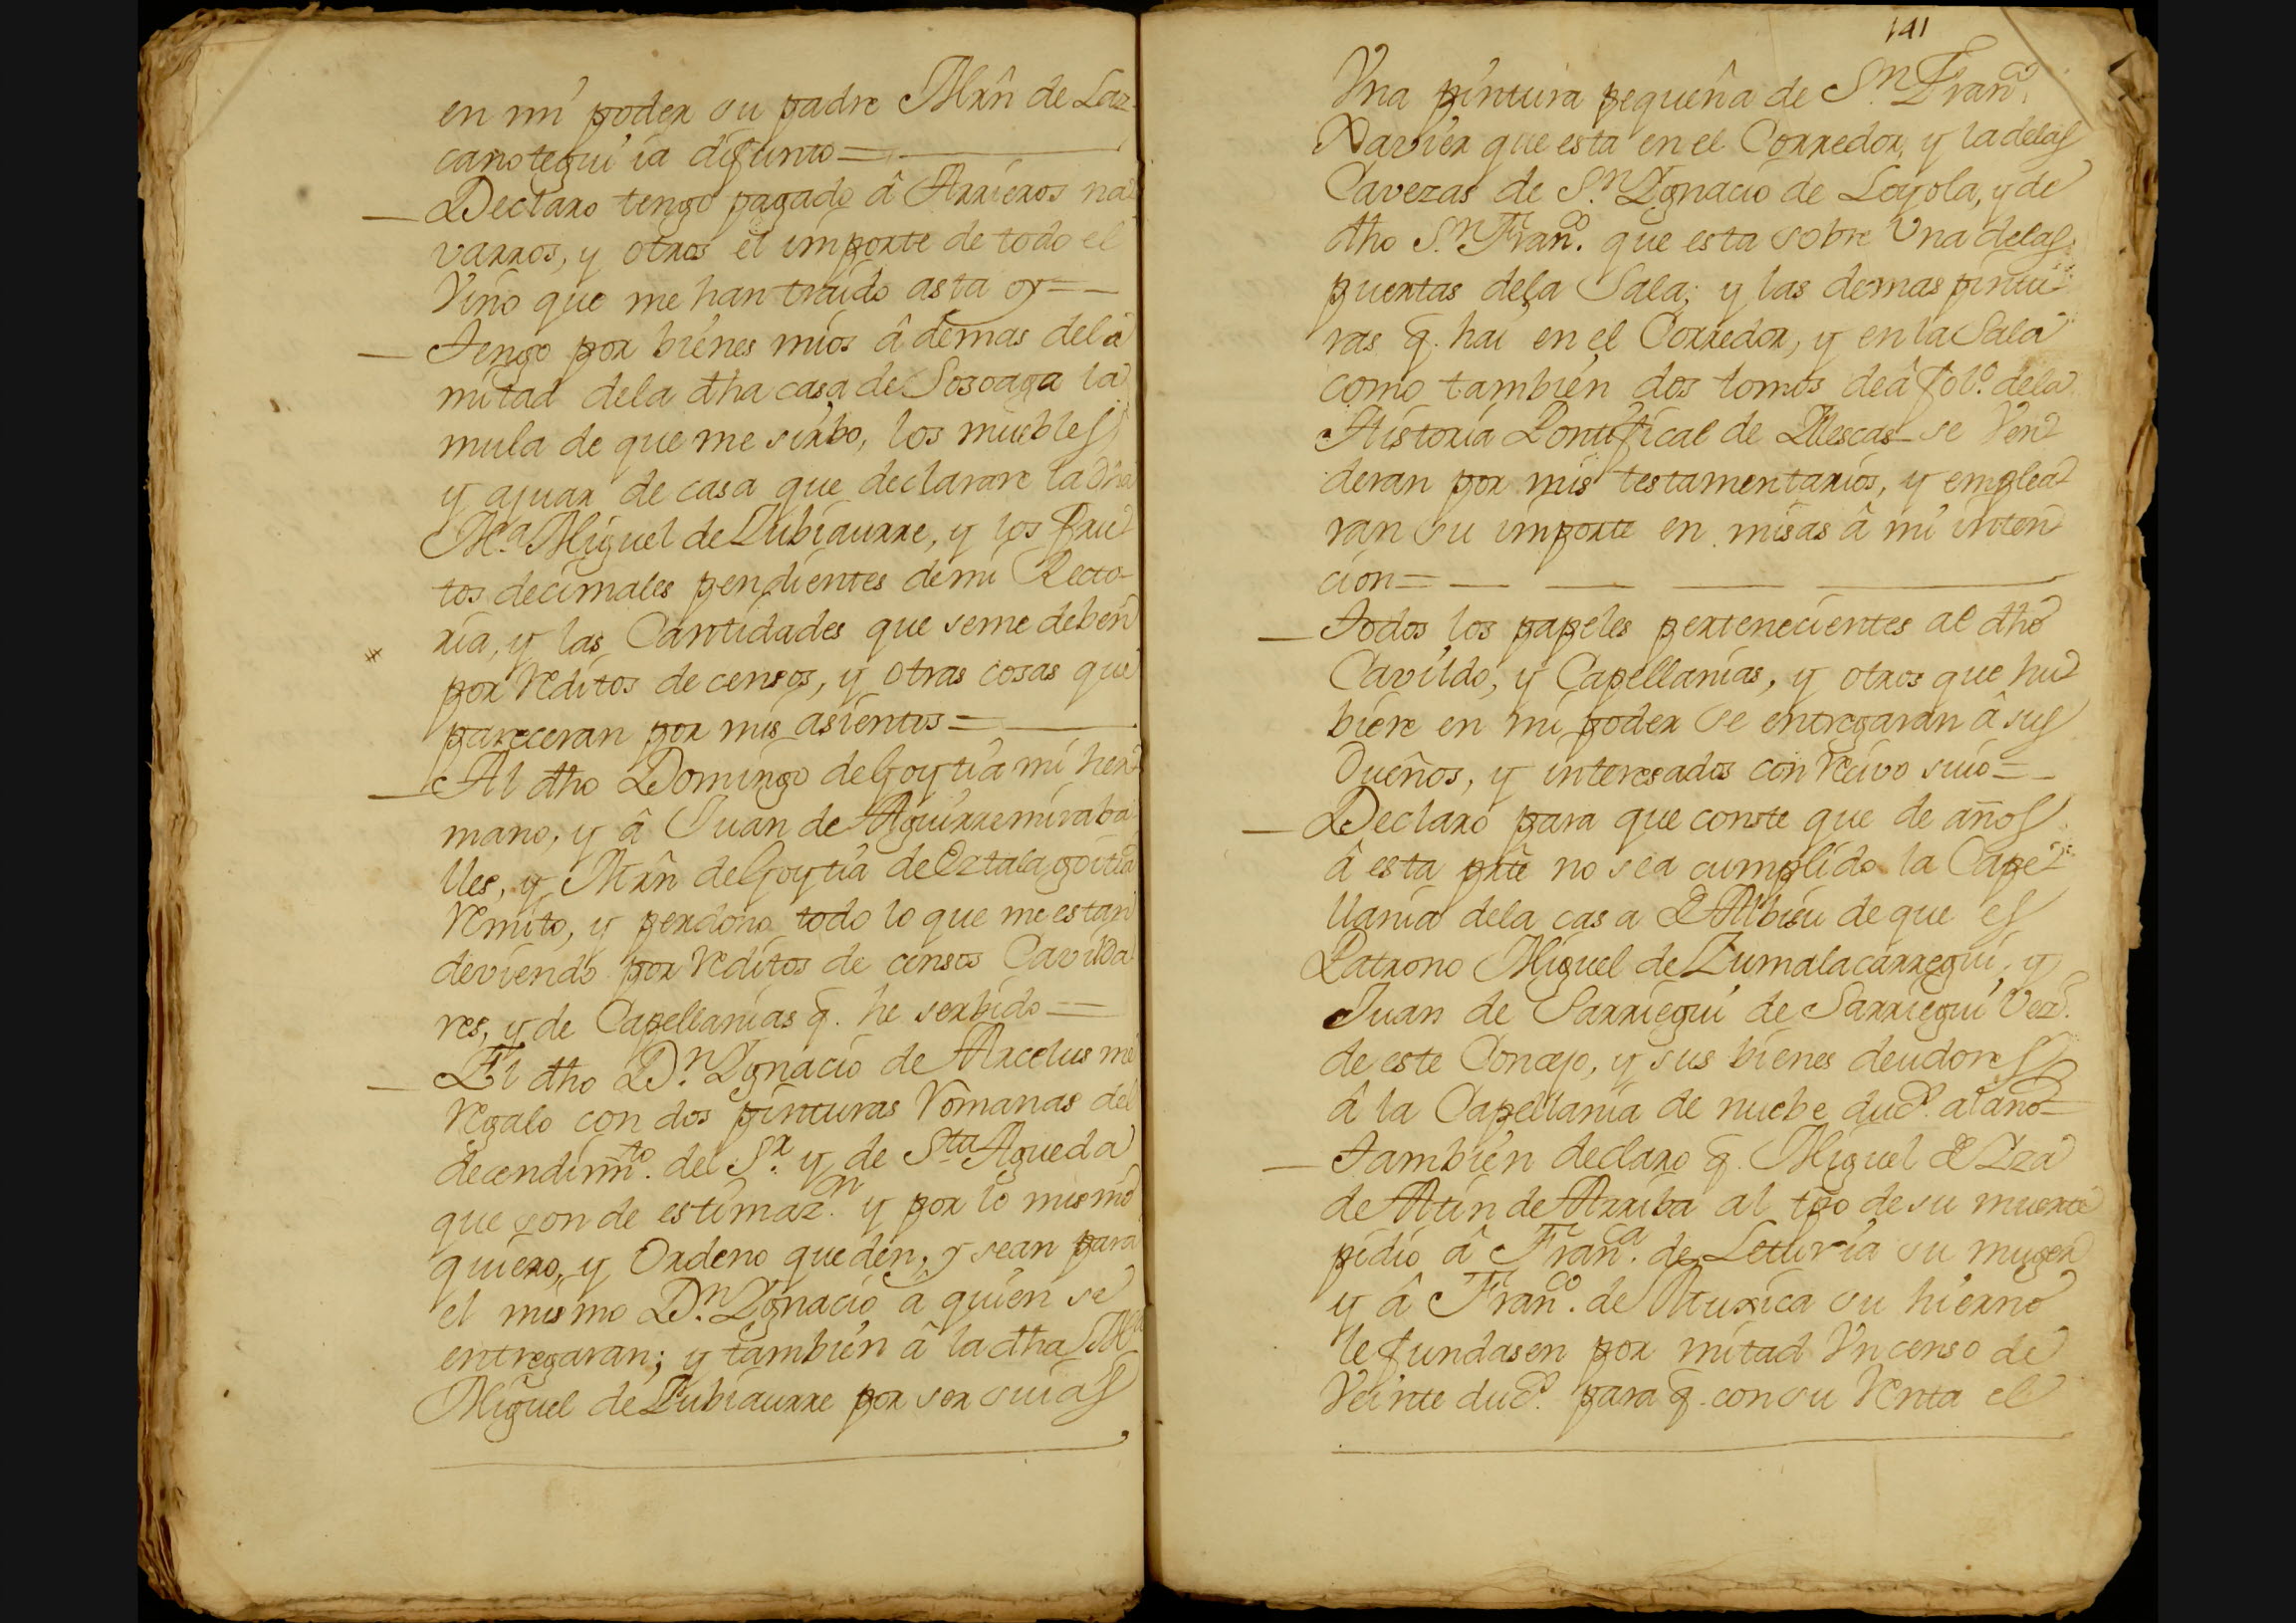 en mi poder su padre Mrn̂ de Laz-
canotegui ia difunto=
Declaro tengo pagado â Arrieros na-
varros, y otros el importe de todo el
Vino que me han traido asta oy=
Tengo por bienes mios â demas dela
mitad dela dha casa de Sosoaga la
mula de que me sirbo, los muebles
y ajuar de casa que declarare la dha
Ma. Miguel de Zubiaurre, y los fru-
tos decimales pendientes de mi Recto-
ria, y las Cantidades que seme deben
por reditos de censos, y otras cosas que
pareceran por mis asientos=
Al dho Domingo de Goytia mi her-
mano, y â Juan de Aguirremiraba-
lles, y Mrn̂ de Goytia de Oztalagoitia
remito, y perdono todo lo que me estan
deviendo por reditos de censos Cavilda-
res, y de Capellanias q̃. he serbido=
El dho Dn. Ygnacio de Arcelus me
regalo con dos pinturas Romanas del
decendimto. del Sr. y de Sta Agueda
que son de estimazn. y por lo mismo
quiero, y Ordeno queden, y sean para
el mismo Dn. Ygnacio â quien se
entregaran; y tambien â la dha Ma
Miguel de Zubiaurre por ser suias
141
Vna pintura pequeña de Sn. Franco.
Xavier que esta en el Corredor, y la delas
Cavezas de Sn. Ygnacio de Loyola, y de
dho Sn. Franco. que esta sobre Vna delas
puertas dela Sala; y las demas pintu-
ras q̃. hai en el Corredor, y en la Sala
como tambien dos tomos de â folo. dela
Historia Pontifical de Yllescas se Ven-
deran por mis testamentarios, y emplea-
ran su importe en misas â mi inten-
cion=
Todos los papeles pertenecientes al dho
Cavildo, y Capellanias, y otros que hu-
biere en mi poder se entregaran â sus
Dueños, y interesados con recivo suio=
Declaro para que conste que de años
â esta pte no sea cumplido la Cape-
llania dela casa de Albisu de que es
Patrono Miguel de Zumalacarregui, y
Juan de Sarriegui de Sarriegui Vezo.
de este Concejo, y sus bienes deudores
â la Capellania de nuebe ducs. al año=
Tambien declaro q̃. Miguel de Yza
de Atin de Arriba al tpo de su muerte
pidio â Franca. de Leturia su muger
y â Franco. de Muxica su hierno
le fundasen por mitad Vn censo de
Veinte ducs. para q̃. con su renta el